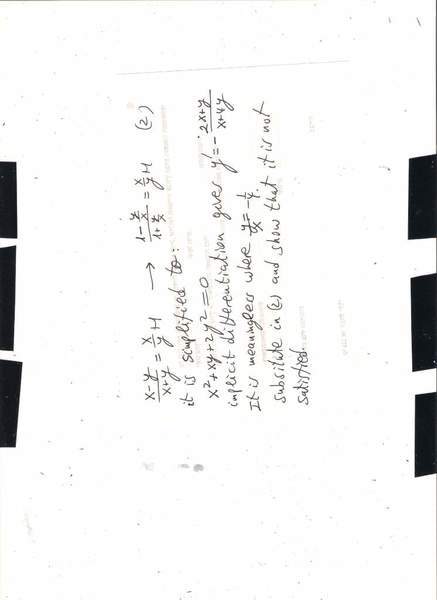 x-y/x+y = x/y +1 → 1-y/x / 1+y/x = x/y +1 (2)
it is simplified to:
x²+xy+2y²=0
implicit differentiation gives y'=- 2x+y/x+4y
It is meaningless where y/x = -1/4.
subsitute in (2) and show that it is not
satisfied.